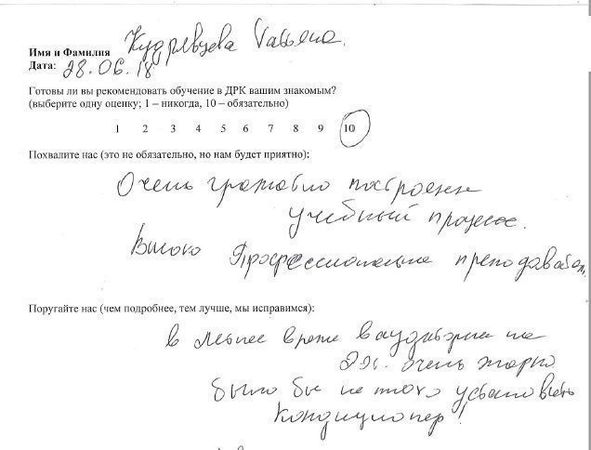 Имя и Фамилия Кудрявцева
Дата: 28.06.18
Готовы ли вы рекомендовать обучение в ДРК вашим знакомым?
(выберите одну оценку; 1 – никогда, 10 – обязательно)
1 2 3 4 5 6 7 8 9 10
Похвалите нас (это не обязательно, но нам будет приятно):
Очень грамотно построен
учебный процесс.
Высоко профессиональные преподаватели.
Поругайте нас (чем подробнее, тем лучше, мы исправимся):
в летнее время в аудитории на
2 эт. очень жарко
было бы не плохо установить
кондиционер!